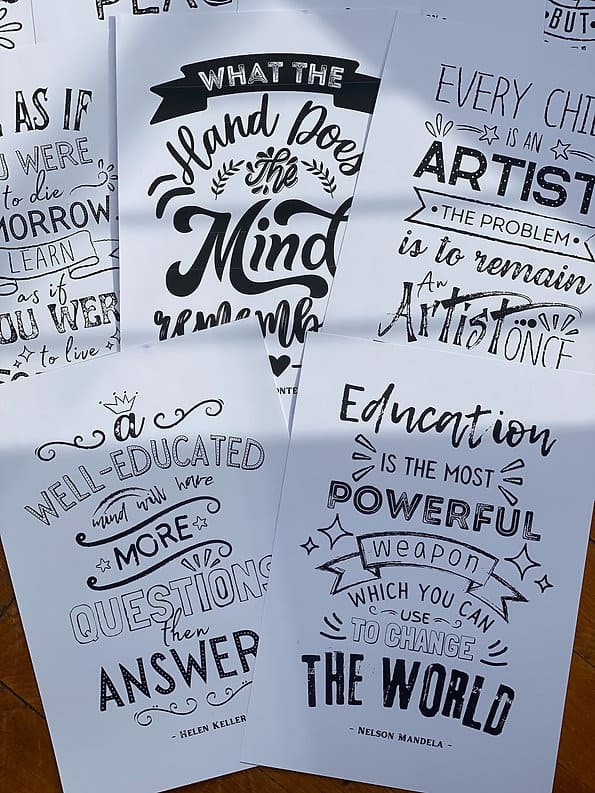 BUT
AS IF
WERE
to die
MORROW
LEARN
as if
YOU WER
to live
WHAT THE
Hand Does
the
Mind
rememb
EVERY CHI
IS AN
ARTIST
THE PROBLEM
is to remain
An
Artist
ONCE
a
WELL-EDUCATED
mind will have
MORE
QUESTIONS
then
ANSWER
- HELEN KELLER
Education
IS THE MOST
POWERFUL
weapon
WHICH YOU CAN
USE
TO CHANGE
THE WORLD
- NELSON MANDELA -